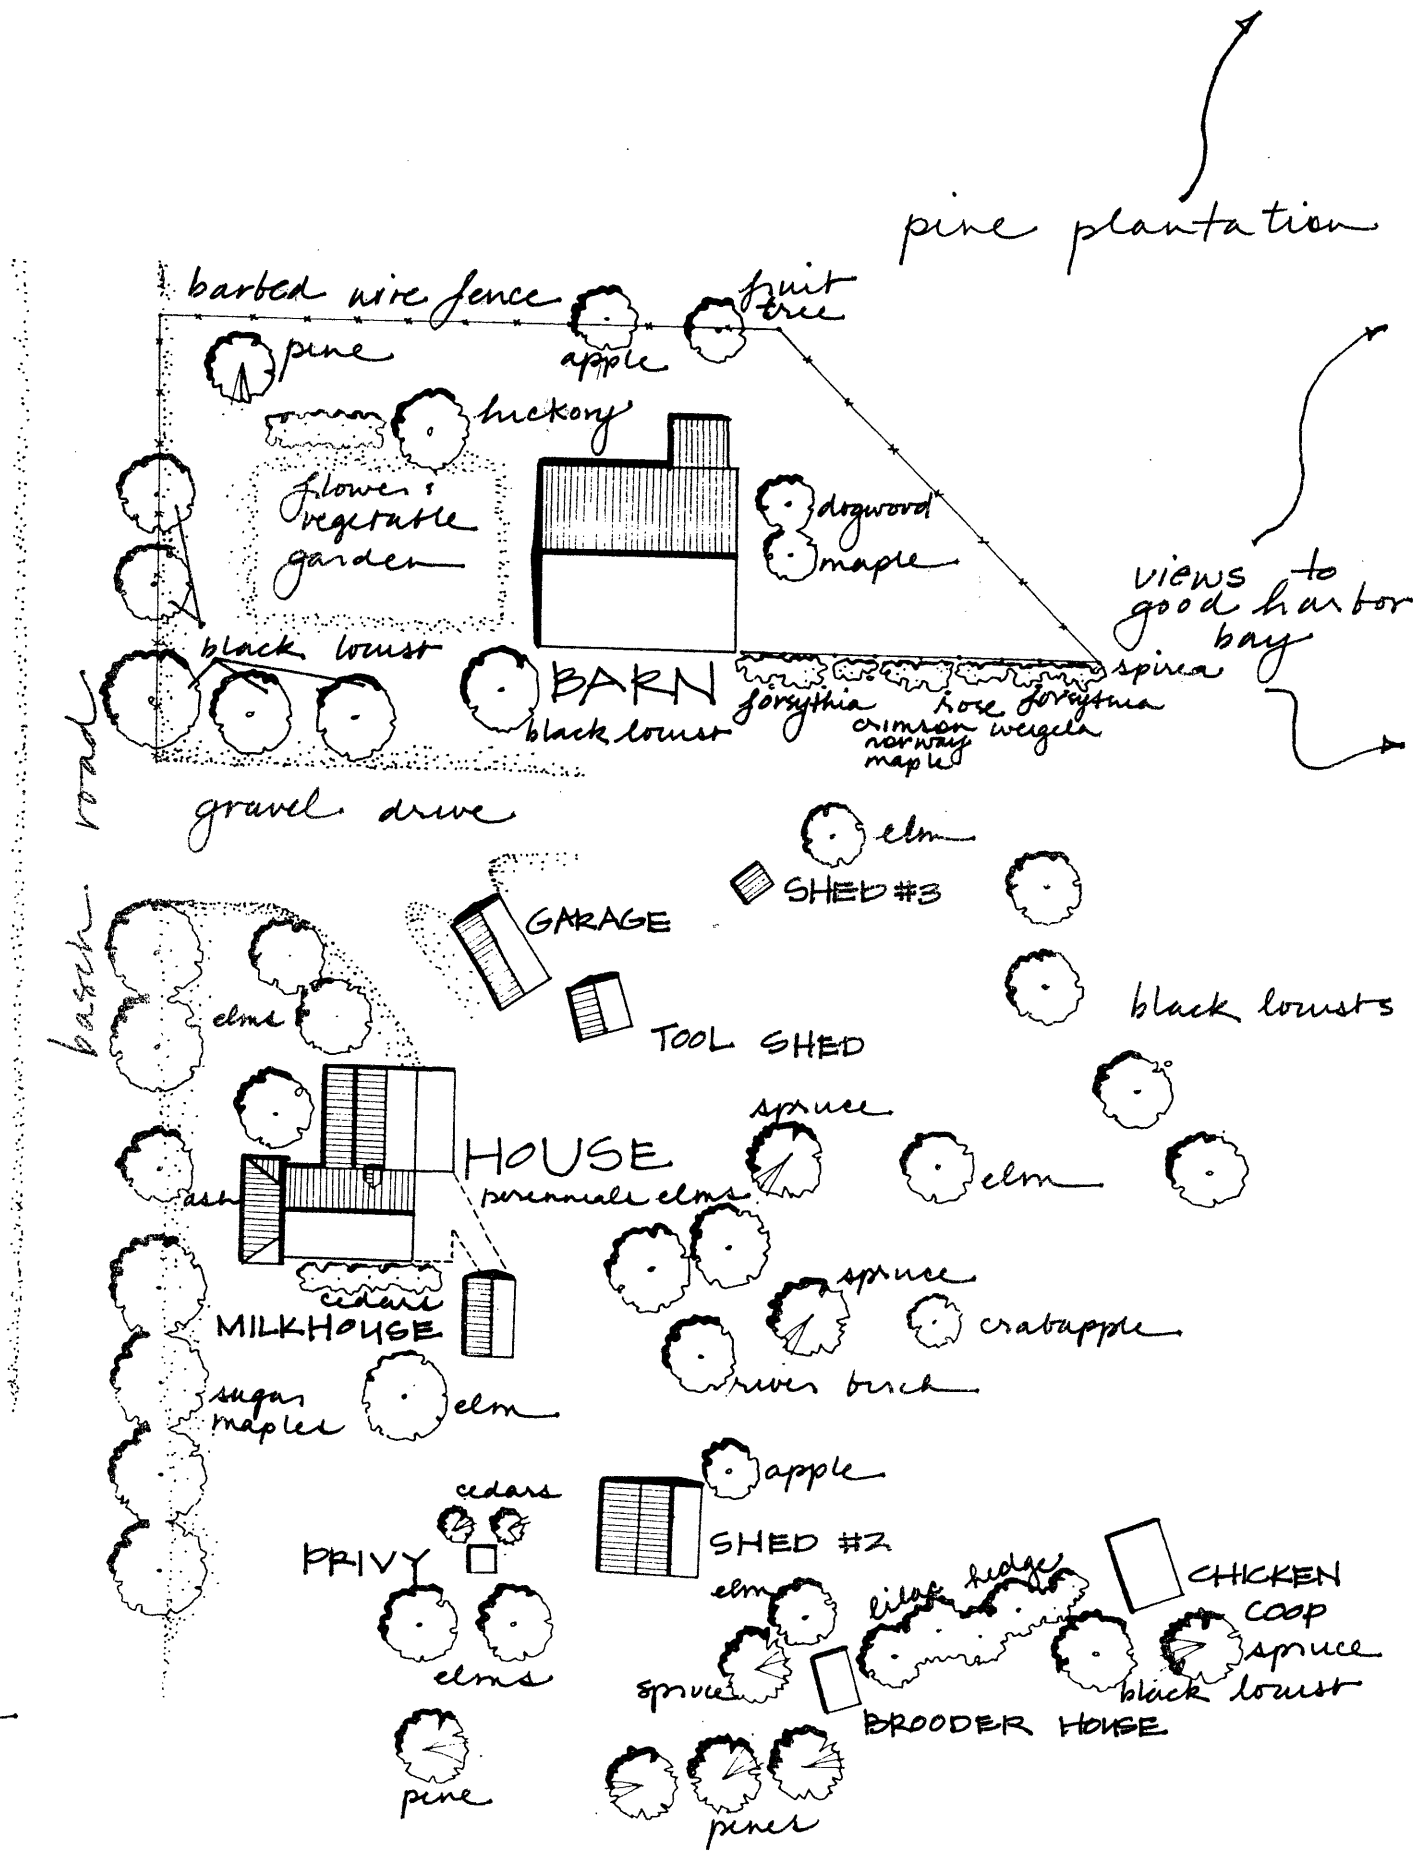 pine plantation
barbed wire fence
fruit
tree
pine
apple
hickory
flower &
vegetable
garden
dogwood
maple
views to
good harbor
bay
black locust
BARN
black locust
spirea
forsythia
crimson
norway
maple
rose
weigela
forsythia
basch road
gravel drive
elm
SHED #3
GARAGE
elms
TOOL SHED
black locusts
spruce
HOUSE
perennials
elms
elm
ash
cedars
MILKHOUSE
spruce
crabapple
river birch
sugar
maples
elm
apple
cedars
PRIVY
SHED #2
elm
lilac hedge
CHICKEN
COOP
spruce
black locust
elms
spruce
BROODER HOUSE
pine
pines